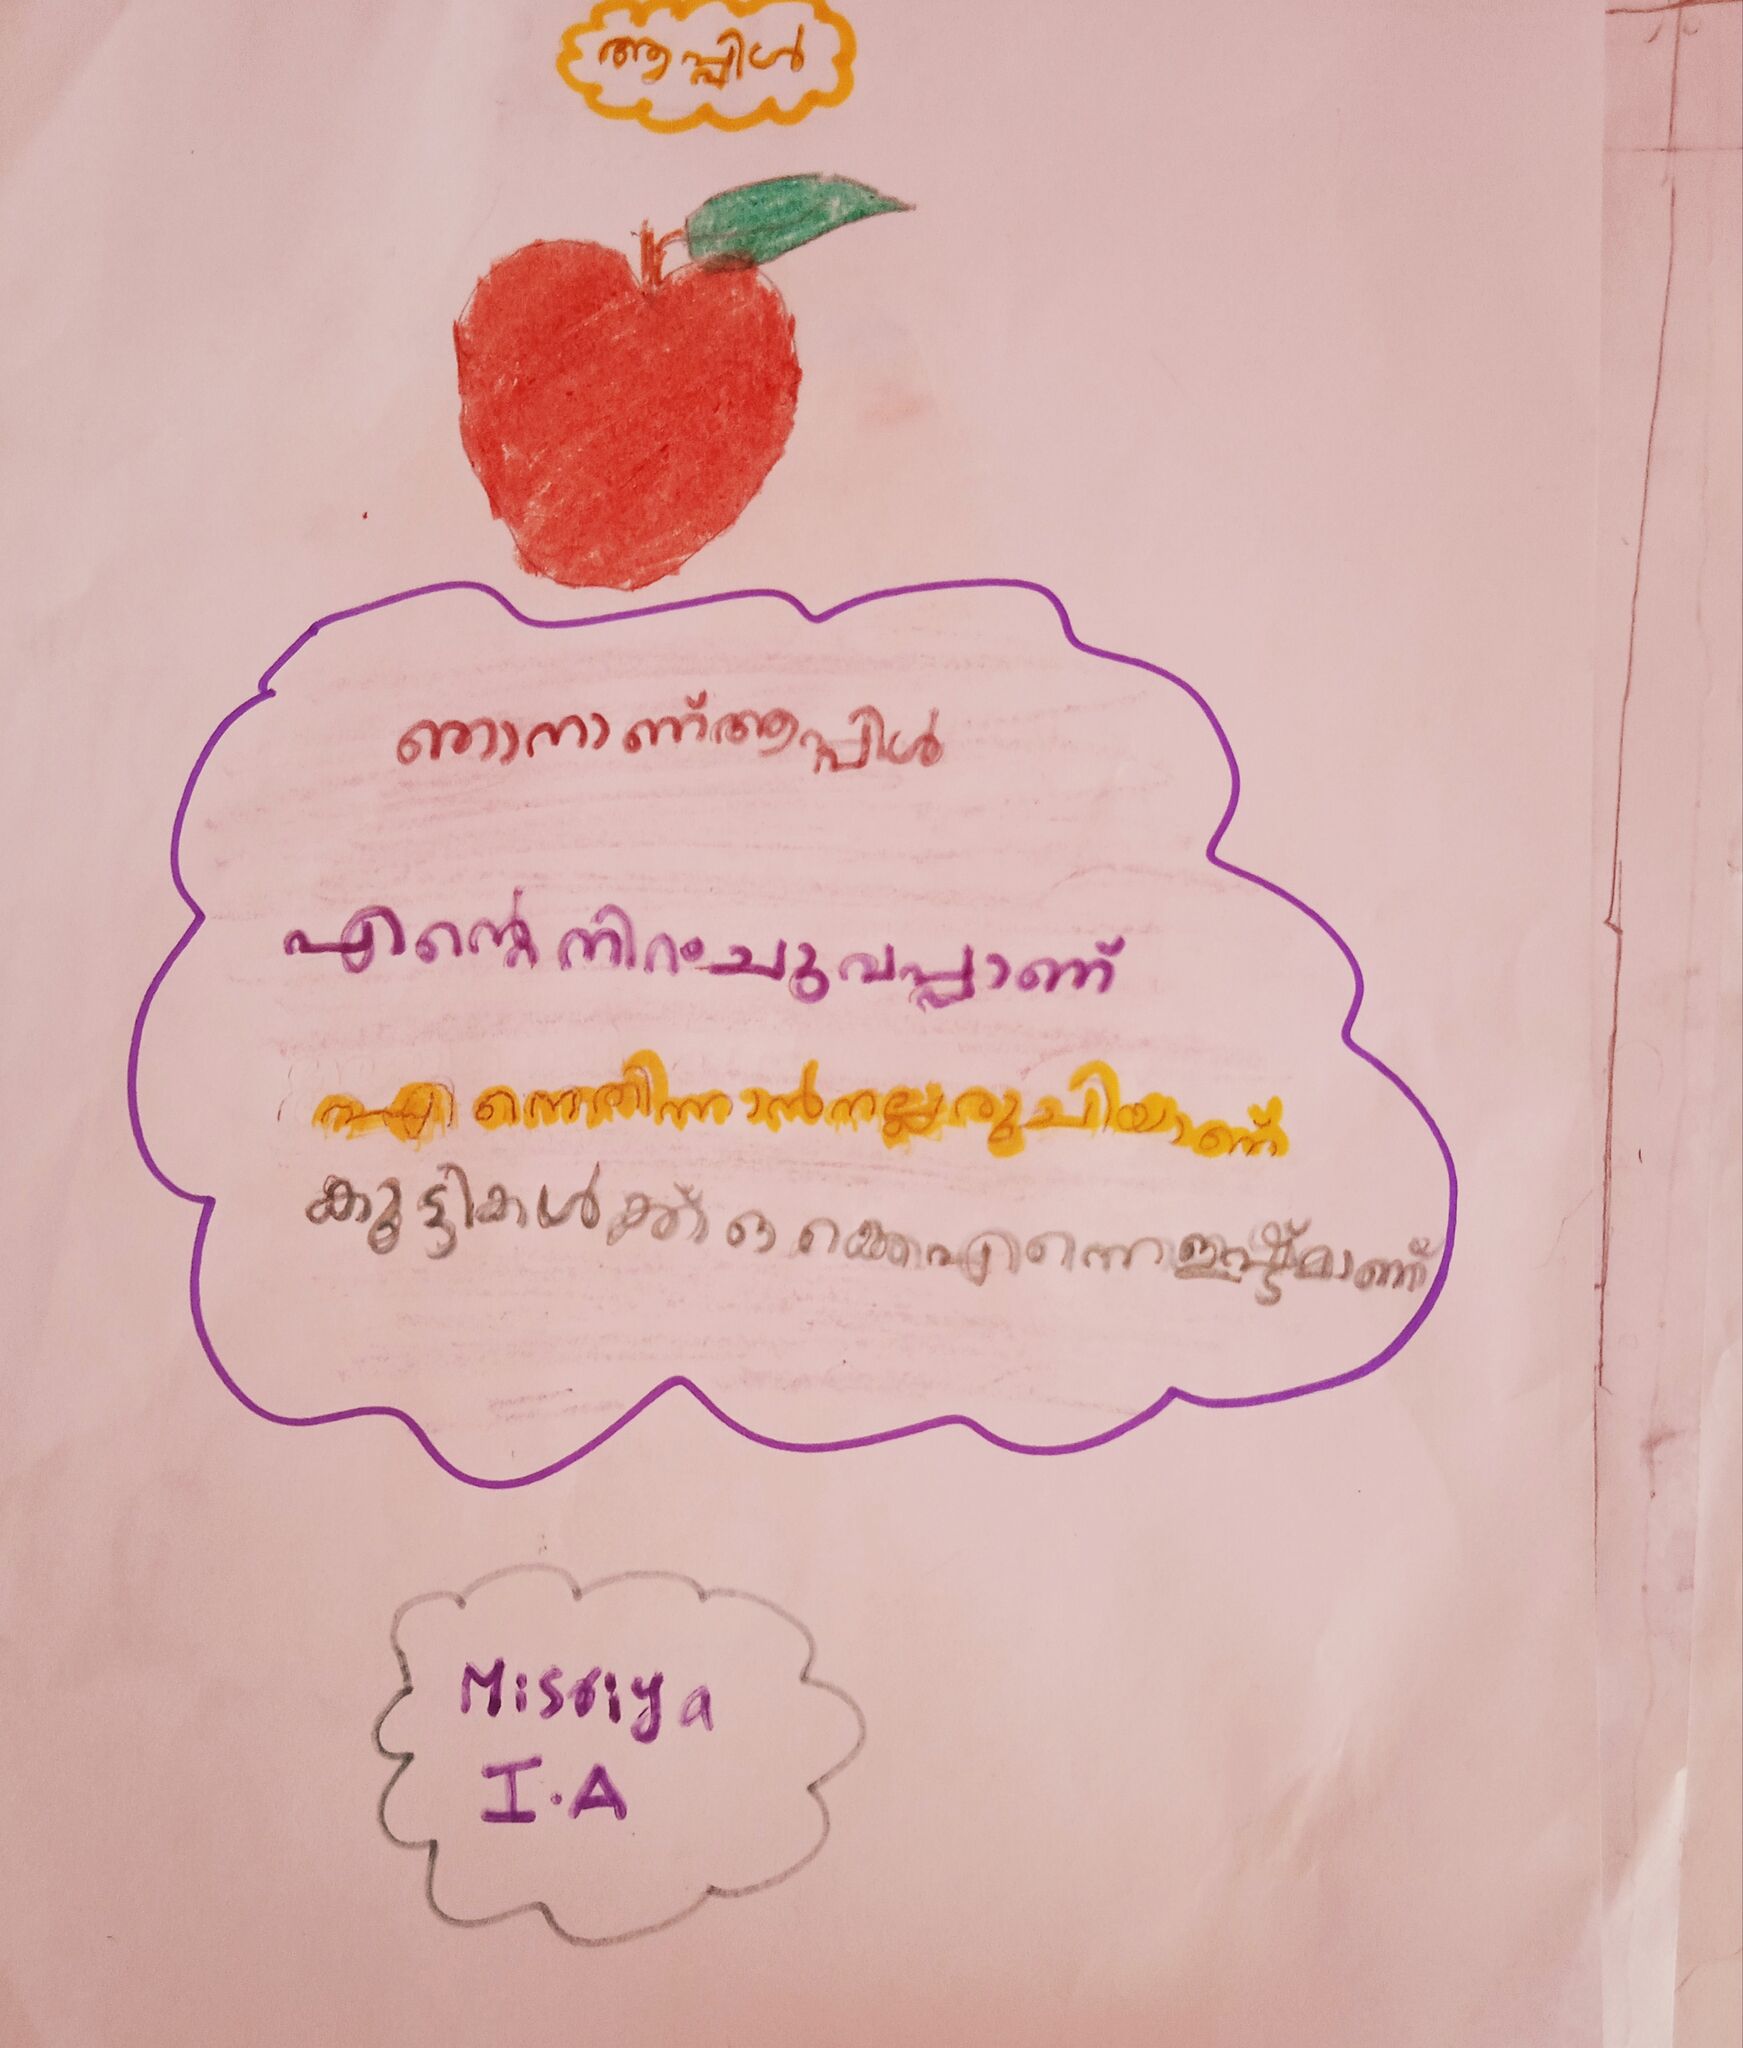 ആപ്പിൾ
ഞാനാണ്ആപ്പിൾ
എന്റെനിറംചുവപ്പാണ്
എന്നെതിന്നാൻനല്ലരുചിയാണ്
കുട്ടികൾക്ക്ഒക്കെഎന്നെഇഷ്ട്ടമാണ്
Misriya
I.A